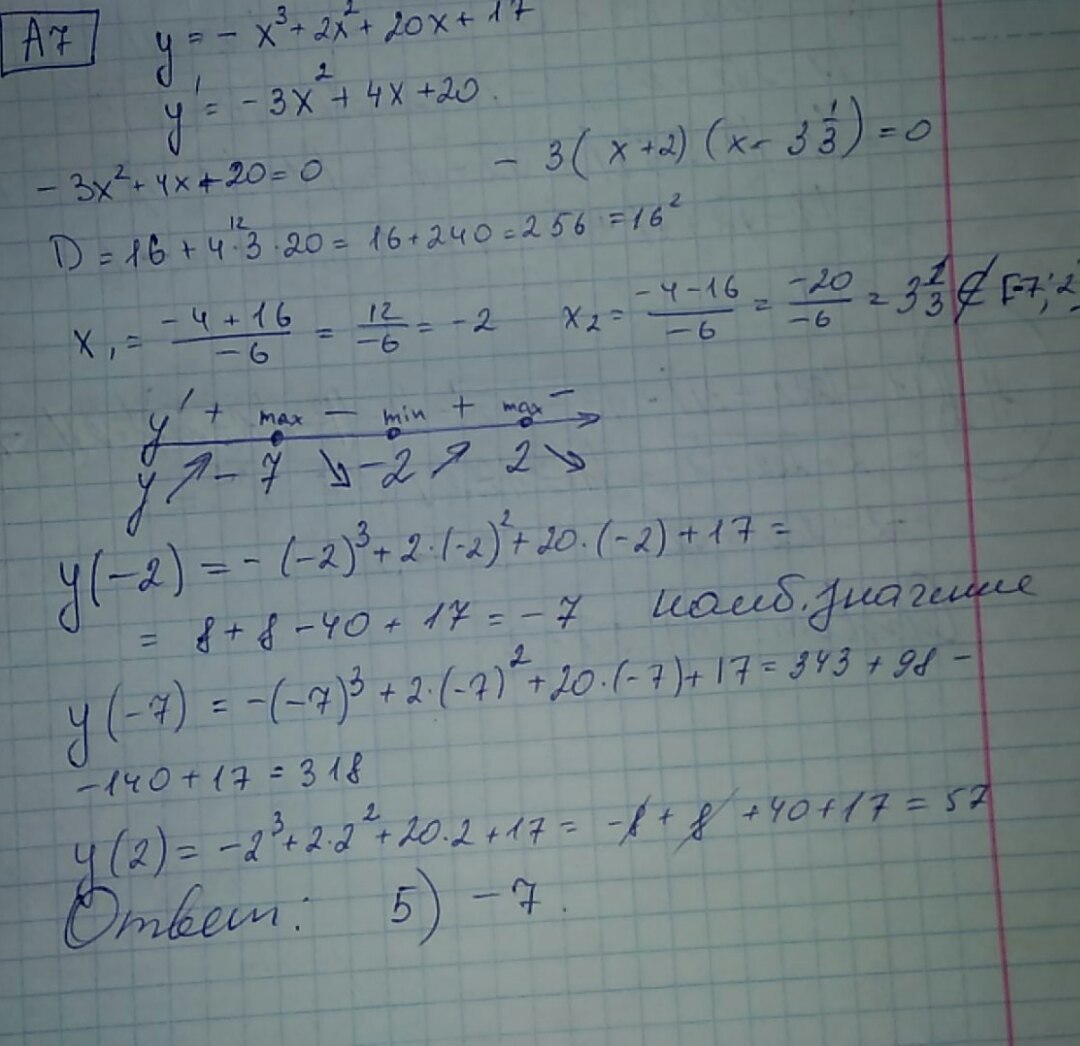 A7 y = - x³ + 2x² + 20x + 17
y' = - 3x² + 4x + 20.
- 3x² + 4x + 20 = 0 - 3 ( x + 2) (x - 3 1/3) = 0
D = 16 + 4 · 3 · 20 = 16 + 240 = 256 = 16²
12
x₁ = (-4 + 16)/(-6) = 12/(-6) = -2 x₂ = (-4 - 16)/(-6) = (-20)/(-6) = 3 1/3 ∉ [-7; 2]
y' + max - min + max -
y ↗ - 7 ↘ -2 ↗ 2 ↘
y(-2) = - (-2)³ + 2·(-2)² + 20·(-2) + 17 =
= 8 + 8 - 40 + 17 = -7 наиб. значение
y(-7) = -(-7)³ + 2·(-7)² + 20·(-7) + 17 = 343 + 98 -
-140 + 17 = 318
y(2) = -2³ + 2·2² + 20·2 + 17 = -8 + 8 + 40 + 17 = 57
Ответ: 5) -7.